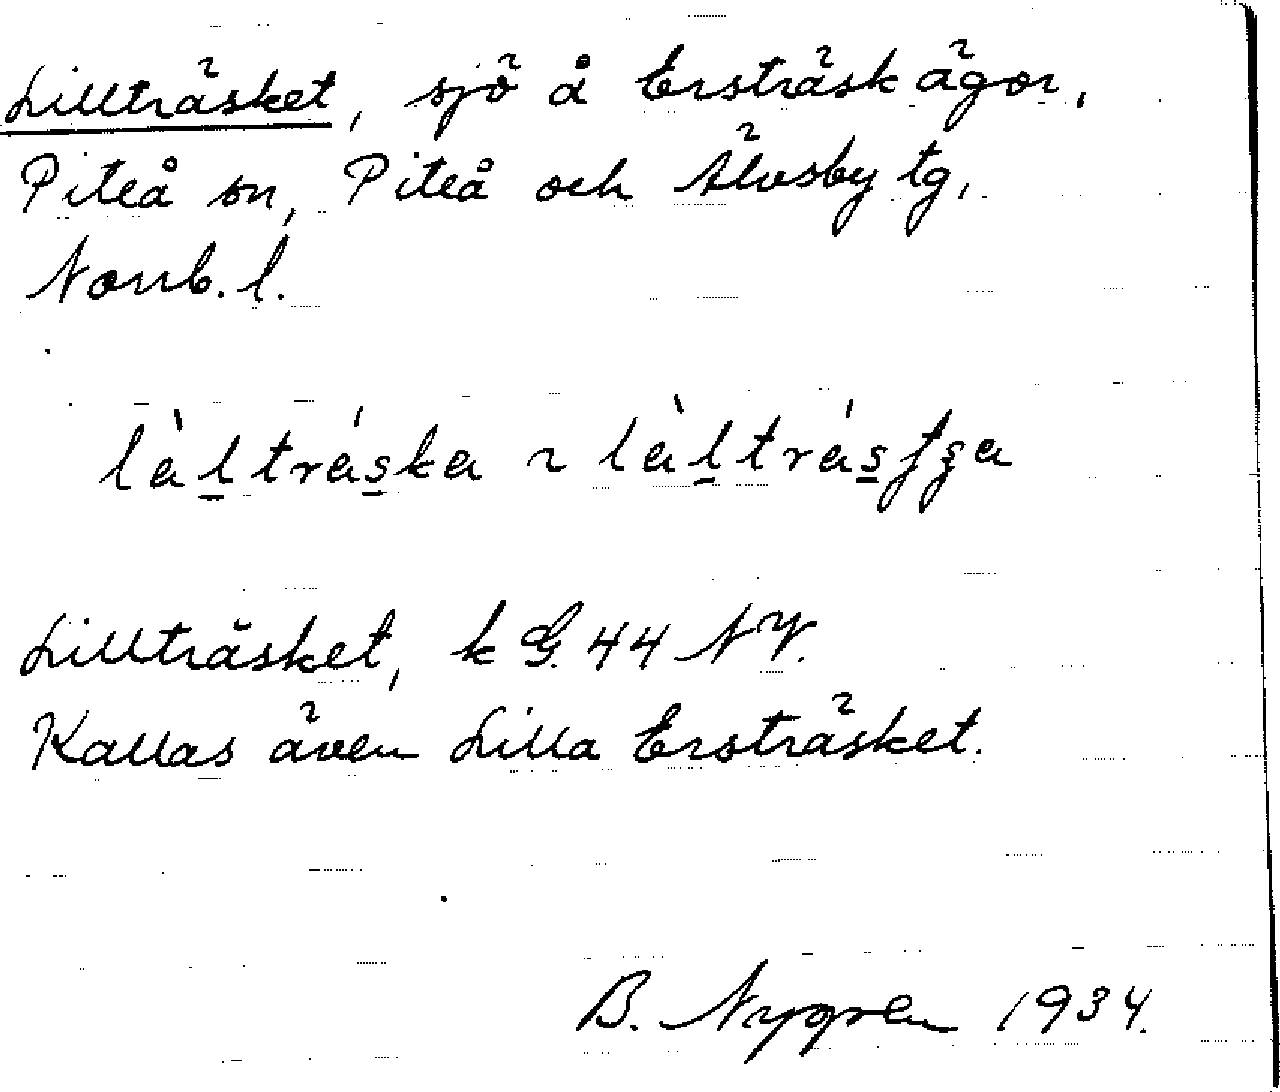 Lillträsket, sjö å Ersträsk ägor,
Piteå sn, Piteå och Älvsby tg,
Norrb. l.
làltráska ~ làltrásʃʒa
Lillträsket, k G. 44 NV.
Kallas även Lilla Ersträsket.
B. Nygren 1934.